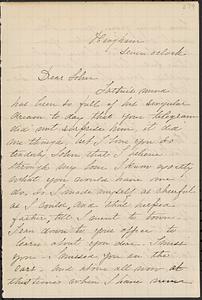 Hingham
Seven o'clock.
Dear John
Lattice mind
has been so full of the singular
reason to day that your telegram
did not surprise him, it did
me though, but I love you so
tenderly John that I believe
through my love I know exactly
what you would have me
do. So I made myself as cheerful
as I could, and that helped
father, till I went to town.
I ran down to your office to
learn about you dear. I miss
you. I missed you in the
cars and above all now at
this time when I have